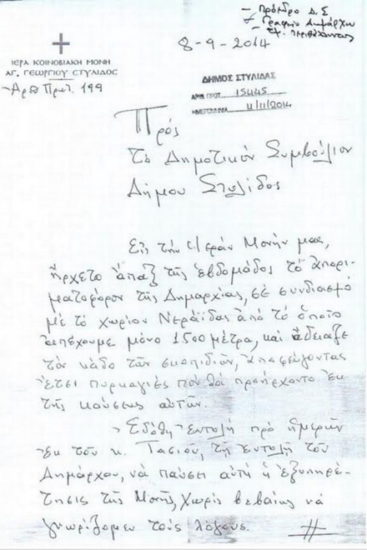 Πρόεδρο Δ.Σ
Γραφείο Δημάρχου
8-9-2014
ΙΕΡΑ ΚΟΙΝΟΒΙΑΚΗ ΜΟΝΗ
ΑΓ. ΓΕΩΡΓΙΟΥ ΣΤΥΛΙΔΟΣ
Αρθ Πρωτ. 199
ΔΗΜΟΣ ΣΤΥΛΙΔΑΣ
ΑΡΙΘ. ΠΡΩΤ. 15445
ΗΜΕΡΟΜΗΝΙΑ 11/11/2014
Πρός
τό Δημοτικόν Συμβούλιον
Δήμου Στυλίδος
Εἰς τήν Ἱεράν Μονήν μας,
ἤρχετο ἅπαξ τῆς ἑβδομάδος τό ἀπορι-
ματοφόρον τῆς Δημαρχίας, σέ συνδιασμό
μέ τό χωρίον Νεράιδα ἀπό τό ὁποῖο
ἀπέχουμε μόνο 1500 μέτρα, καί ἄδειαζε
τόν κάδο τῶν σκουπιδιῶν, ἀποφεύγοντας
ἔτσι πυρκαγιές πού θά προήρχοντο ἐκ
τῆς καύσεως αὐτῶν.
Ἐδόθη ἐντολή πρό ἡμερῶν
ἐκ τοῦ κ. Τασιοῦ, τῇ ἐντολῇ τοῦ
Δημάρχου, νά παύσει αὐτή ἡ ἐξυπηρέ-
τησις τῆς Μονῆς, χωρίς βεβαίως νά
γνωρίζομεν τούς λόγους.